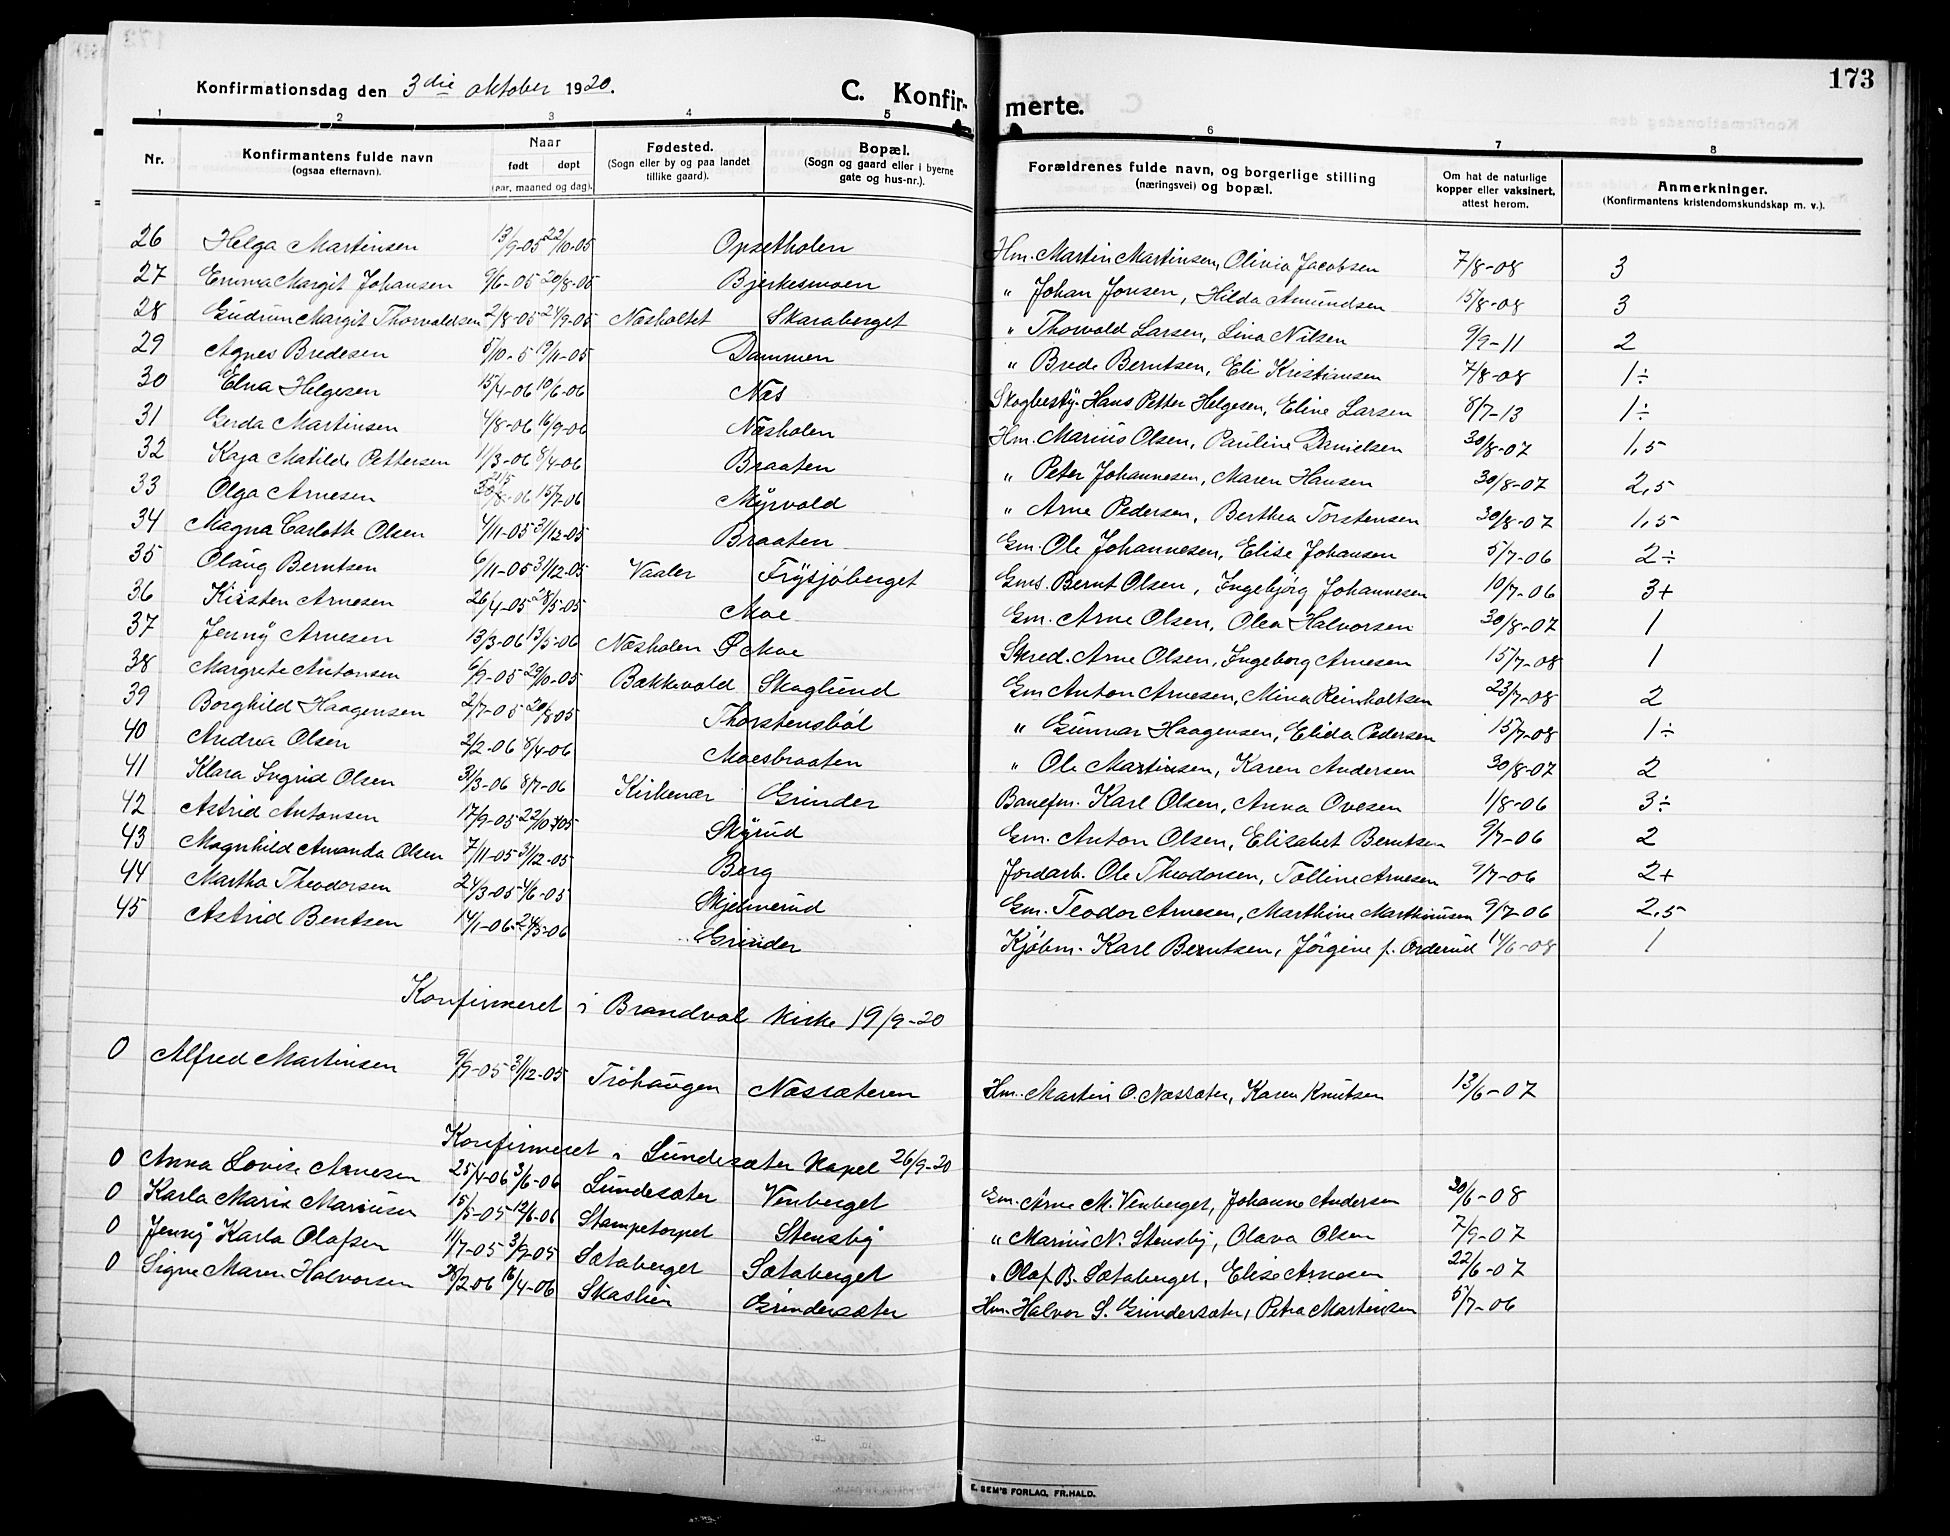 173
Konfirmationsdag den 3die oktober 1920.
C. Konfirmerte.
1 2 3 4 5 6 7 8
Nr. Konfirmantens fulde navn (ogsaa efternavn). Naar født døpt (aar, maaned og dag). Fødested. (Sogn eller by og paa landet tillike gaard). Bopæl. (Sogn og gaard eller i byerne gate og hus-nr.). Forældrenes fulde navn, og borgerlige stilling (næringsvei) og bopæl. Om hat de naturlige kopper eller vaksinert, attest herom. Anmerkninger. (Konfirmantens kristendomskundskap m. v.).
26 Helga Martinsen 13/9-05 22/10-05 Opsetholen Hm. Martin Martinsen, Olivia Jacobsen 7/8-08 3
27 Emma Margit Johansen 9/6-05 20/8-05 Bjerkesmoen " Johan Jonsen, Hilda Amundsen 15/8-08 3
28 Gudrun Margit Thorvaldsen 2/8-05 24/9-05 Næsholtet Skaraberget " Thorvald Larsen, Lina Nilsen 9/9-11 2
29 Agnes Bredesen 5/10-5 19/11-05 Dammen " Brede Berntsen, Eli Kristiansen 7/8-08 1÷
30 Elna Helgesen 15/4-06 10/6-06 Næs Skogbesty. Hans Petter Helgesen, Eline Larsen 8/7-13 1÷
31 Gerda Martinsen 4/8-06 16/9-06 Næsholen Hm. Marius Olsen, Pauline Danielsen 30/8-07 1,5
32 Kaja Matilde Pettersen 11/3-06 8/4-06 Braaten " Peter Johannesen, Maren Hansen 30/8-07 2,5
33 Olga Arnesen 15/7-06 Myrvold " Arne Pedersen, Berthea Torstensen 30/8-07 1,5
34 Magna Carlotte Olsen 4/11-05 31/12-05 Braaten Gm. Ole Johannesen, Elise Johansen 5/7-06 2÷
35 Olaug Berntsen 6/11-05 31/12-05 Vaaler Frysjøberget Gms. Bernt Olsen, Ingebjørg Johannesen 10/7-06 3+
36 Kirsten Arnesen 26/4-05 28/5-05 Moe Gm. Arne Olsen, Olea Halvorsen 30/8-07 1
37 Jenny Arnesen 13/3-06 13/5-06 Næsholen Ø Moe Skred. Arne Olsen, Ingeborg Arnesen 15/7-08 1
38 Margrete Antonsen 6/9-05 29/10-05 Bækkevold Skoglund Gm Anton Arnesen, Mina Reinholtsen 23/7-08 2
39 Borghild Haagensen 2/7-05 20/8 05 Thorstensbøl " Gunnar Haagensen, Elida Pedersen 15/7-08 1÷
40 Andrea Olsen 2/2-06 8/4-06 Moesbraaten " Ole Martinsen, Karen Andersen 30/8-07 2
41 Klara Ingrid Olsen 31/3-06 8/7-06 Kirkenær Grinder Banefm. Karl Olsen, Anna Ovesen 1/8-06 3÷
42 Astrid Antonsen 17/9-05 22/10-05 Skyrud Gm. Anton Olsen, Elizabet Berntsen 9/7-06 2
43 Magnhild Amanda Olsen 7/11-05 31/12-05 Berg Jordarb. Ole Theodorsen, Tolline Arnesen 9/7-06 2+
44 Martha Theodorsen 24/3-05 4/6-05 Skjelverud Gm. Teodor Arnesen, Marthine Marthinusen 9/7-06 2,5
45 Astrid Bentsen 14/1-06 24/5-06 Grinder Kjøbm. Karl Berntsen, Jørgine f. Orderud 14/6-08 1
Konfirmeret i Brandval Kirke 19/9-20
0 Alfred Martinsen 9/9-05 31/12-05 Trohaugen Næssæteren Hm. Martin O. Næssæter, Karen Knutsen 13/6-07
Konfirmeret i Lundersæter Kapel 26/9-20
0 Anna Lovise Arnesen 25/4-06 3/6-06 Lundesæter Venberget Gm. Arne M. Venberget, Johanne Andersen 20/6-08
0 Karla Marie Mariusen 15/5-05 12/6-06 Stampetorpet Stensby " Marius N. Stensby, Olava Olsen 7/9-07
0 Jenny Karla Olafsen 11/7-05 3/9-05 Sætaberget Sætaberget " Olaf B. Sætaberget, Elise Arnesen 22/6-07
0 Signe Maren Halvorsen 16/4-06 Skaslien Grindersæter Hm. Halvor S. Grindersæter, Petra Martinsen 5/7-06
E. SEM'S FORLAG, FR.HALD.